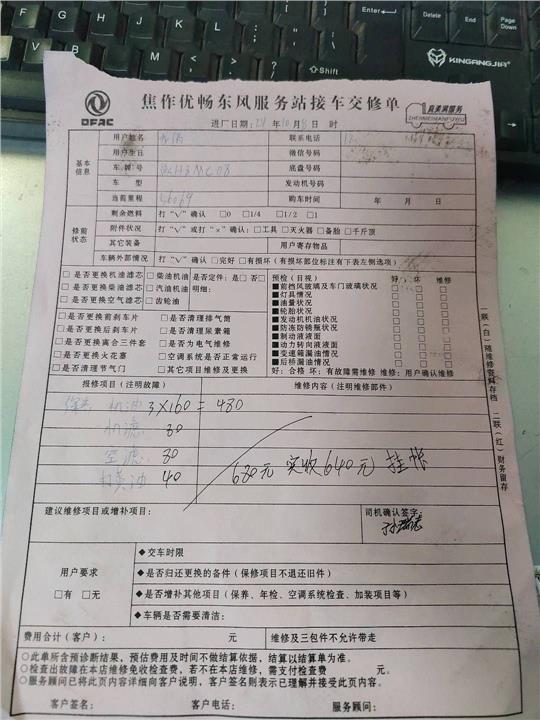 Delete
End
Page Down
Shift
KINGANGJIA
DFAC
焦作优畅东风服务站接车交修单
真美满服务
ZHENMEIMANFUWU
进厂日期: 21 年 10 月 时
基本信息
用户姓名
联系电话
用户生日
微信号码
车牌号
底盘号码
车型
发动机号码
当前里程
购车时间 年 月 日
修前状态
剩余燃料 打“√”确认 □0 □1/4 □1/2 □1
附件状况 打“√”或打“×”确认：□工具 □灭火器 □备胎 □千斤顶
其它装备 用户寄存物品
车辆外部情况 打“√”确认 □完好 □有损坏（有损原部位标注有下表左侧选项）
□是否更换机油滤芯 □柴油机油 是否定件：是□否□
□是否更换柴油滤芯 □汽油机油 明细：
□是否更换空气滤芯 □齿轮油
□是否更换前刹车片 □是否清理排气筒
□是否更换后刹车片 □是否清理尿素箱
□是否更换离合三件套 □是否为电气维修
□是否更换火花塞 □空调系统是否正常运行
□是否清理节气门 □其它项目维修及更换
预检（目视） 好： 坏 维修
■前挡风玻璃及车门玻璃状况
■灯具情况
■油量状况
■轮胎状况
■发动机机油状况
■防冻防锈瓶状况
■制动液液面
■动力转向液液面
■变速箱漏油情况
■后桥漏油情况
好：合格 坏：有故障需维修 维修：用户确认维修
报修项目（注明故障） 维修内容（注明维修部件）
保养 机油 3×160=480
机滤 80
空滤 80
黄油 40
680元 实收640元 挂帐
建议维修项目或增补项目：
司机确认签字：
用户要求
□有 □无
◆交车时限
◆是否归还更换的备件（保修项目不退还旧件）
◆是否增补其他项目（保养、年检、空调系统检查、加装项目等）
◆车辆是否需要清洁：
费用合计（客户）： 元 维修及三包件不允许带走
○此单所含预诊断结果，预估费用及时间不做结算依据，结算以结算单为准。
○检查出故障在本店维修免收检查费，若不在本店维修，需支付检查费 元。
○服务顾问已将此页内容详细向客户说明，客户签名则表示已理解并接受此页内容。
客户签名： 客户电话： 服务顾问：
一联（白）随维修资料存档
二联（红）财务留存